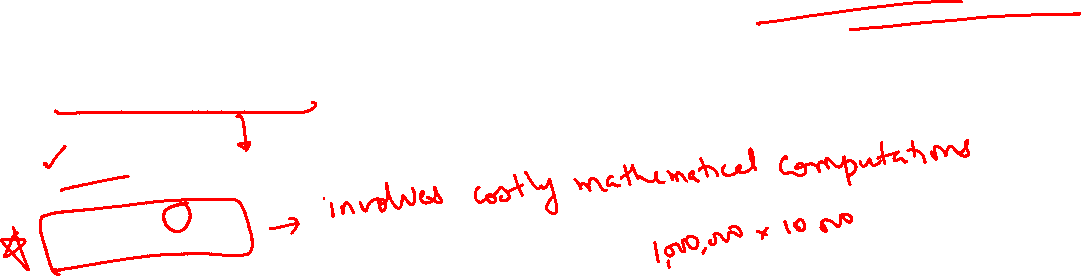 involves costly mathematical computations
1,000,000 × 10 000